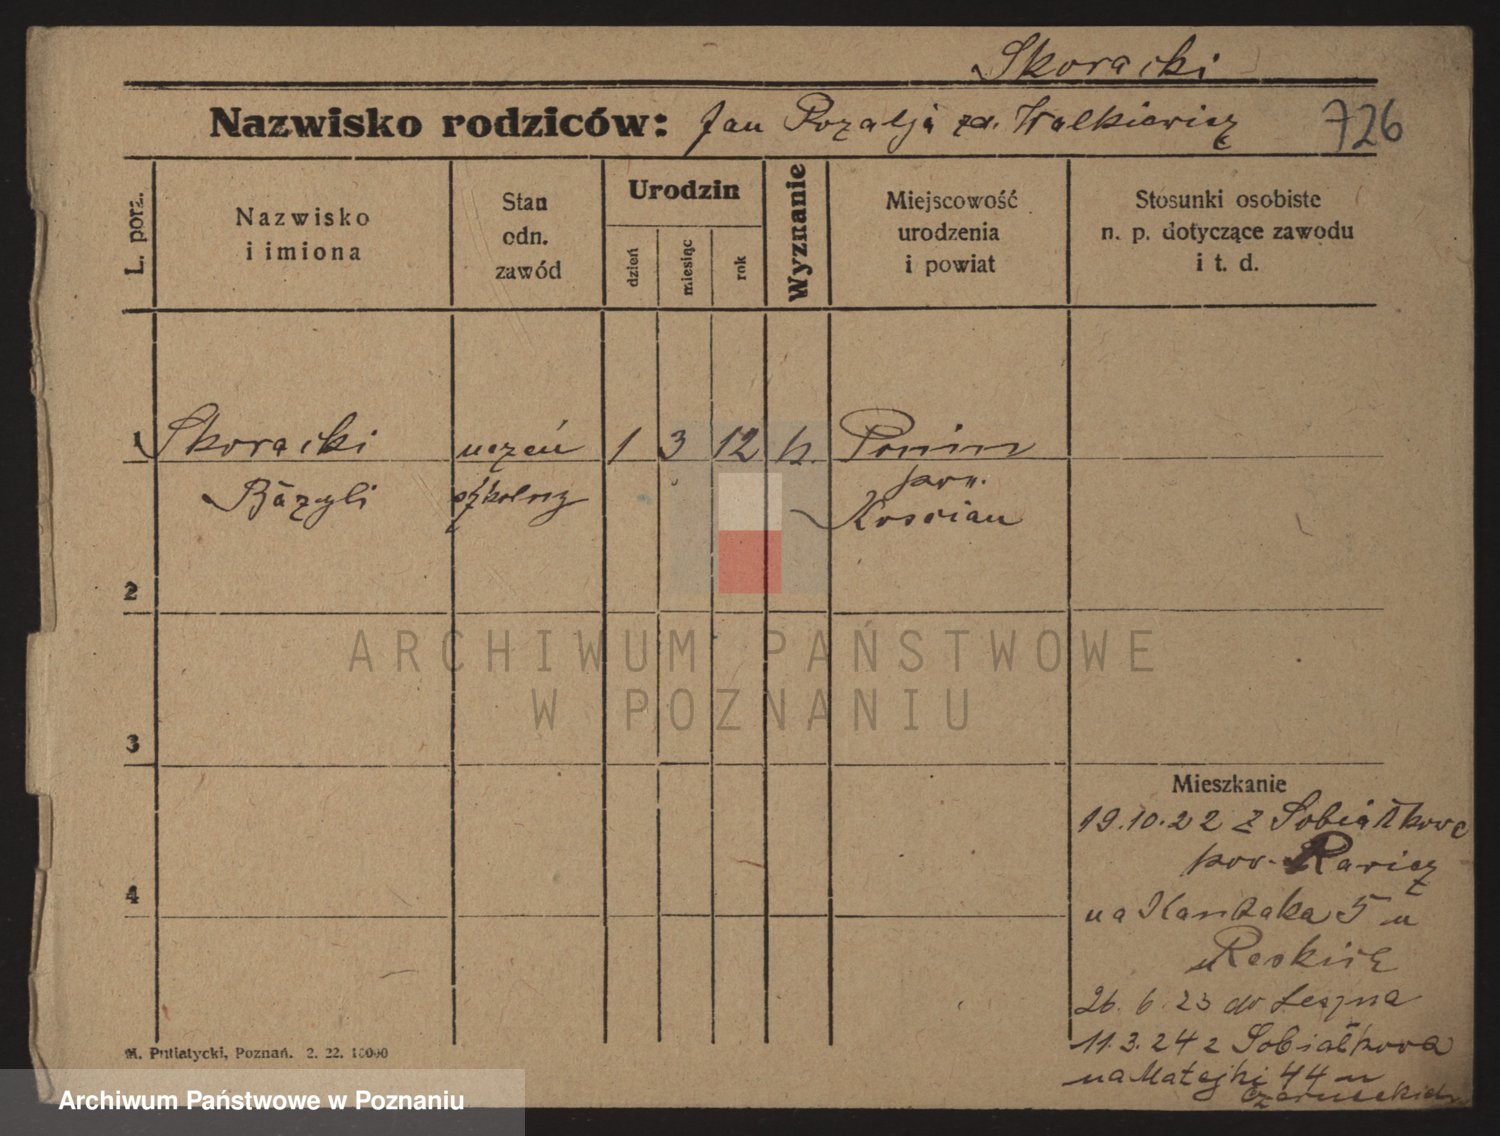 Skoracki
Nazwisko rodziców: Jan Rozalja zd. Walkiewicz 726
L. porz.
Nazwisko
i imiona
Stan
odn.
zawód
Urodzin
dzień
miesiąc
rok
Wyznanie
Miejscowość
urodzenia
i powiat
Stosunki osobiste
n. p. dotyczące zawodu
i t. d.
1 Skoracki uczeń 1 3 12 k. Ponin
Bazyli szkolny pow.
Kościan
2
3
4
Mieszkanie
19.10.22 z Sobiałkowa
pow. Rawicz
na Kantaka 5 u
26. 6. 23 do Leszna
11.3.24 z Sobiałkowa
na Matejki 44 u
M. Putiatycki, Poznań. 2. 22. 10000
ARCHIWUM PAŃSTWOWE
W POZNANIU
Archiwum Państwowe w Poznaniu